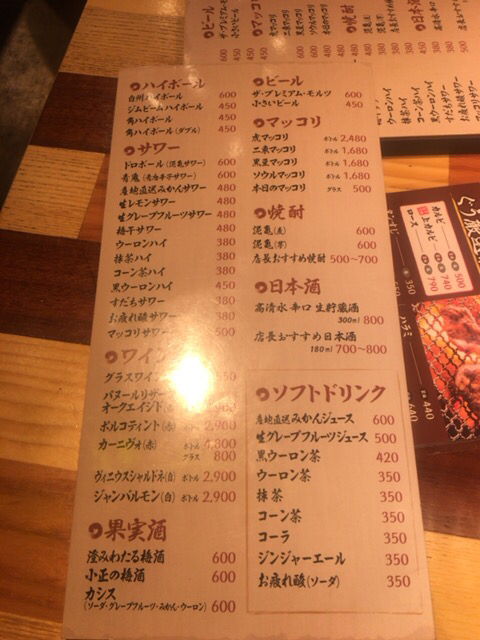 ハイボール
白州ハイボール 600
ジムビームハイボール 450
角ハイボール 450
角ハイボール(ダブル) 450
サワー
ドロボール(泥亀サワー) 600
青鬼(青唐辛子サワー) 600
産地直送みかんサワー 480
生レモンサワー 480
生グレープフルーツサワー 480
梅干サワー 480
ウーロンハイ 380
抹茶ハイ 380
コーン茶ハイ 380
黒ウーロンハイ 450
すだちサワー 380
お疲れ酸サワー 380
マッコリサワー 500
ワイン
グラスワイン
バヌールリザーブ
オークエイジド
ボルコティント(赤) ボトル 2,900
カーニヴォ(赤) ボトル 4,800
グラス 800
ヴィニウスシャルドネ(白) ボトル 2,900
ジャンバルモン(白) ボトル 2,900
果実酒
澄みわたる梅酒 600
小正の梅酒 600
カシス
(ソーダ・グレープフルーツ・みかん・ウーロン) 600
ビール
ザ・プレミアム・モルツ 600
小さいビール 450
マッコリ
虎マッコリ ボトル 2,480
二東マッコリ ボトル 1,680
黒豆マッコリ ボトル 1,680
ソウルマッコリ ボトル 1,680
本日のマッコリ グラス 500
焼酎
泥亀(麦) 600
泥亀(芋) 600
店長おすすめ焼酎 500~700
日本酒
高清水 辛口 生貯蔵酒
300ml 800
店長おすすめ日本酒
180ml 700~800
ソフトドリンク
産地直送みかんジュース 600
生グレープフルーツジュース 500
黒ウーロン茶 420
ウーロン茶 350
抹茶 350
コーン茶 350
コーラ 350
ジンジャーエール 350
お疲れ酸(ソーダ) 350